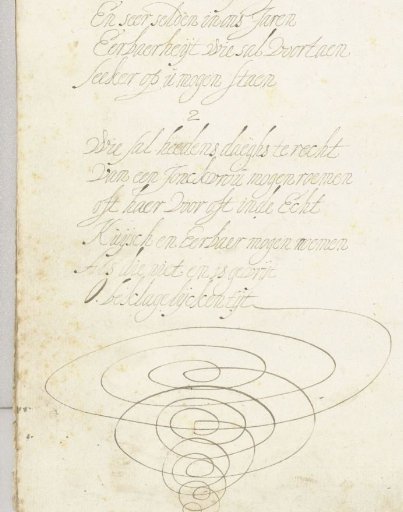 En seer selden in ons Jaren
Eerbaerheijt wie sal Voortaen
seeker op u mogen staen
2
Wie sal heedens daeghs te recht
Van een Jonckvrou mogen roemen
oft haer Voor oft inde Echt
Kuijsch en Eerbaer mogen noemen
Als die niet en is
O beklagelijcken tijt